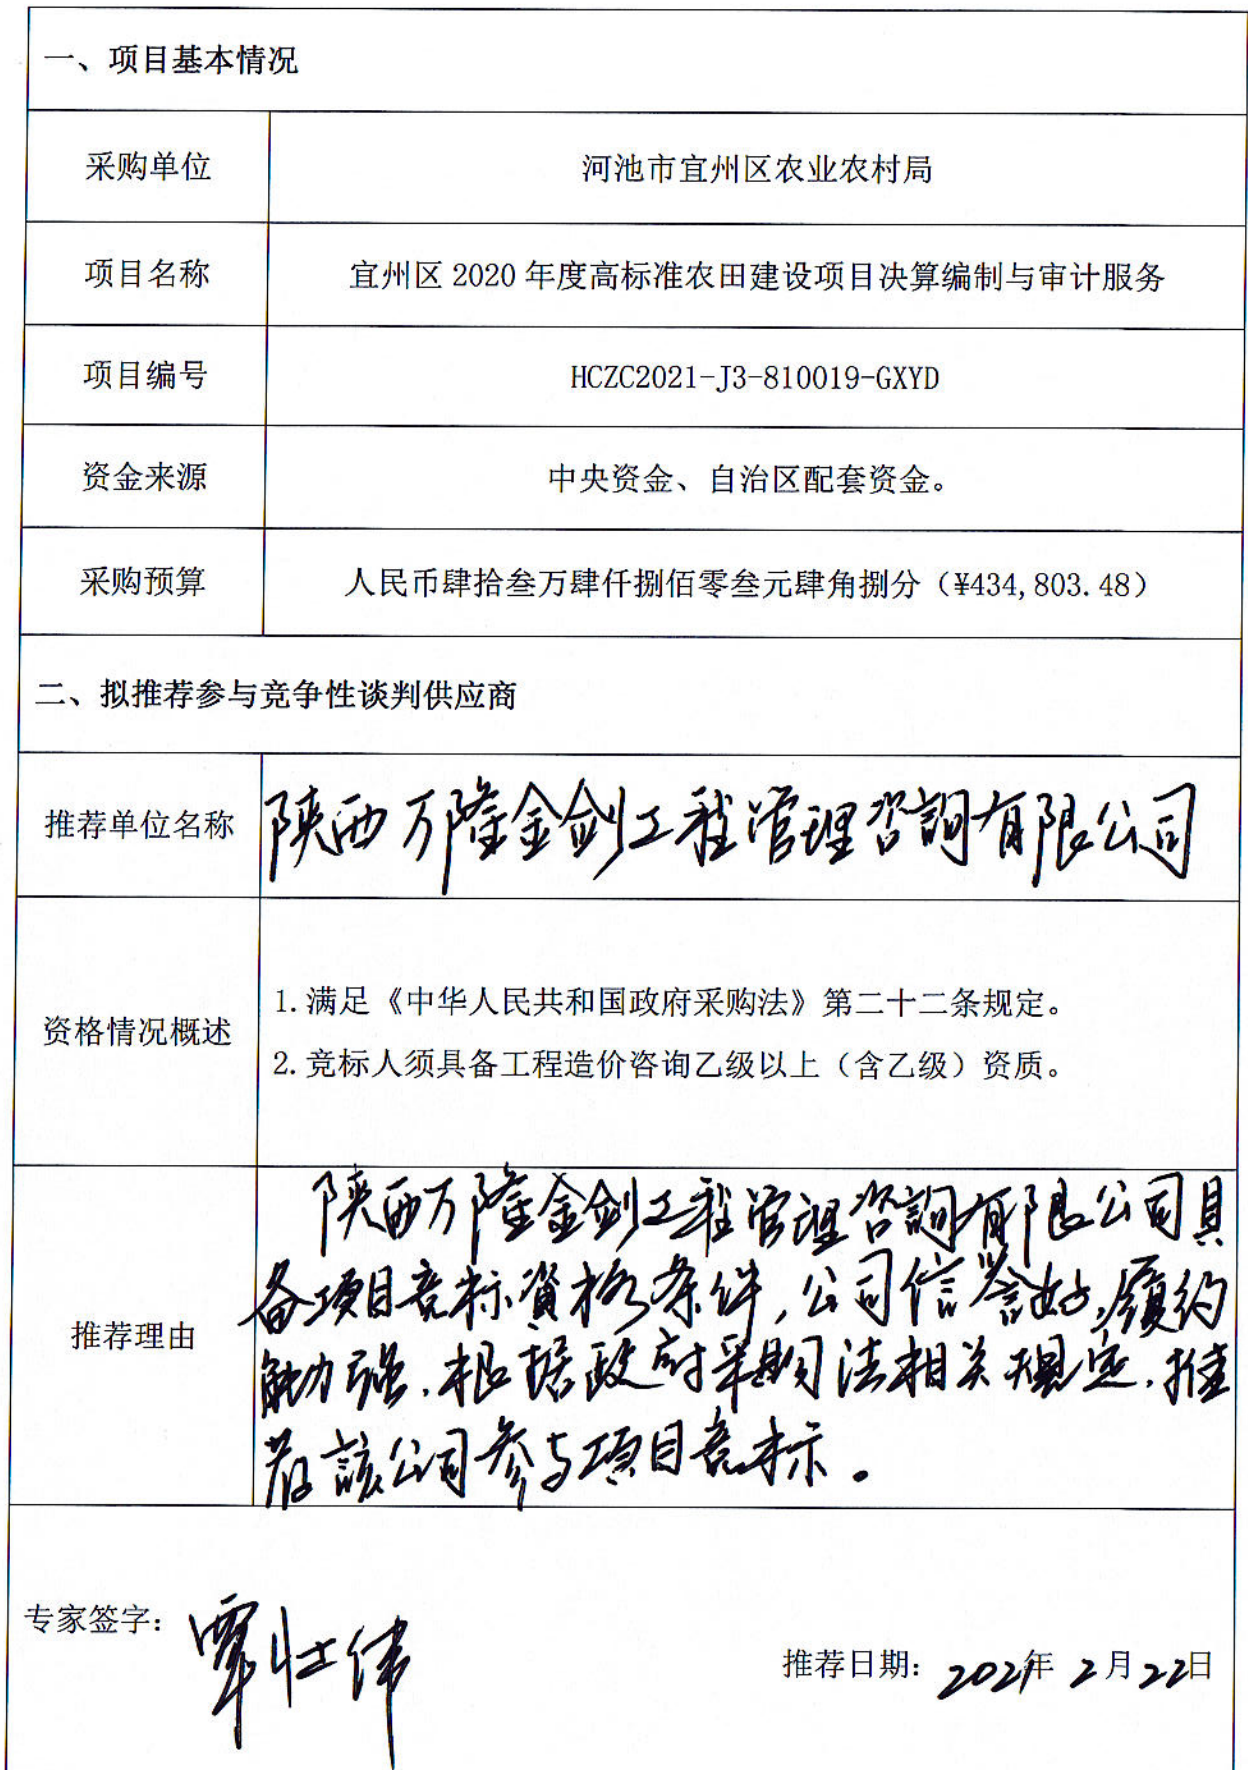 一、项目基本情况
采购单位 河池市宜州区农业农村局
项目名称 宜州区 2020 年度高标准农田建设项目决算编制与审计服务
项目编号 HCZC2021-J3-810019-GXYD
资金来源 中央资金、自治区配套资金。
采购预算 人民币肆拾叁万肆仟捌佰零叁元肆角捌分（¥434,803.48）
二、拟推荐参与竞争性谈判供应商
推荐单位名称 陕西万隆金剑工程管理咨詢有限公司
资格情况概述
1.满足《中华人民共和国政府采购法》第二十二条规定。
2.竞标人须具备工程造价咨询乙级以上（含乙级）资质。
推荐理由
陕西万隆金剑工程管理咨詢有限公司具
备项目竞标資格条件，公司信誉好，履约
能力强，根据政府采购法相关规定，推
荐該公司参与项目竞标。
专家签字：覃壮伟
推荐日期：2021年 2月22日